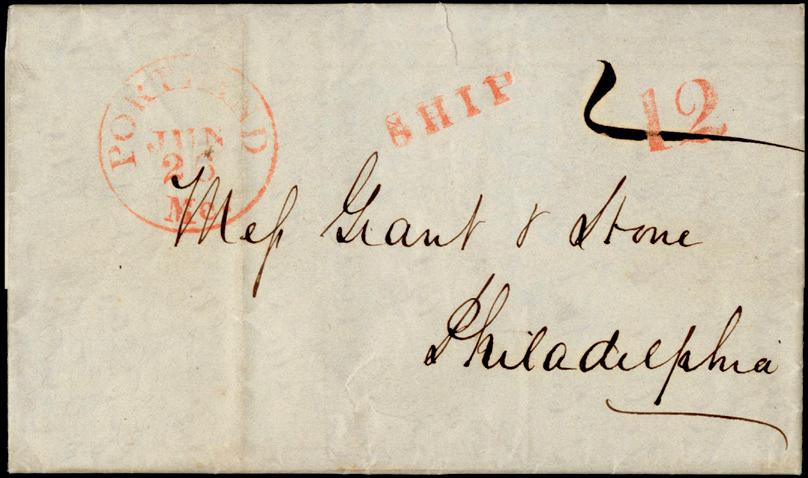 PORTLAND
JUN
25
Me
SHIP
12
Mess Grant & Stone
Philadelphia